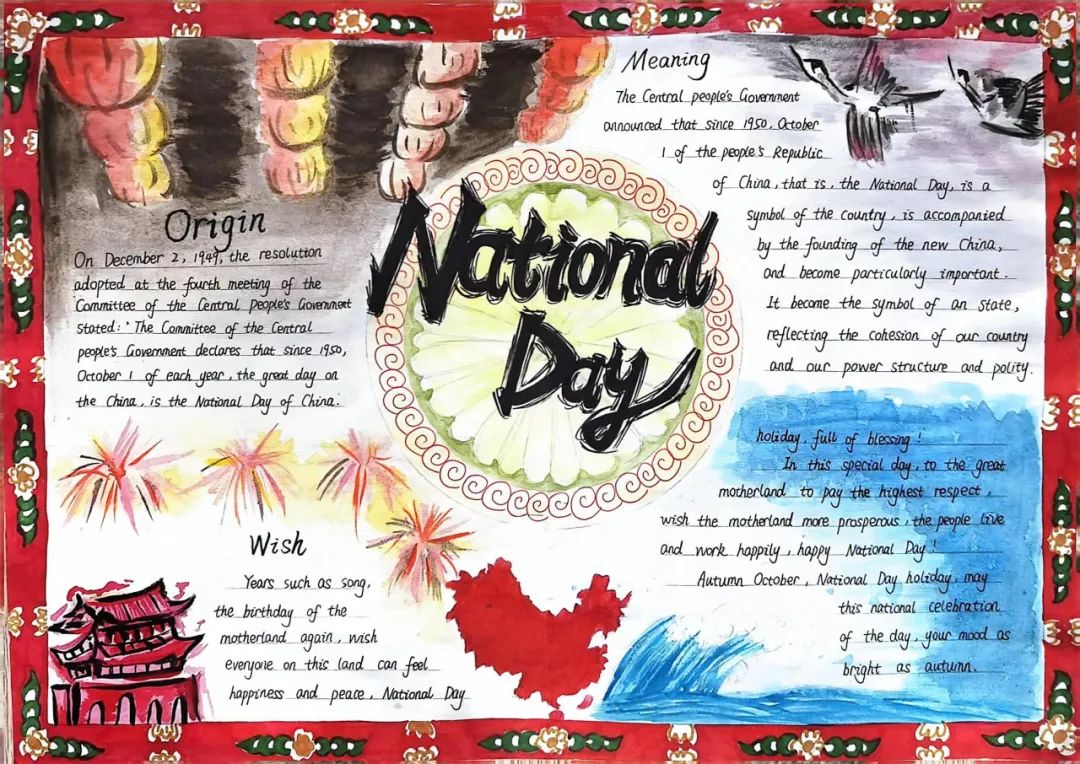 National
Day
Origin
On December 2, 1949, the resolution
adopted at the fourth meeting of the
Committee of the Central People's Government
stated: "The Committee of the Central
people's Government declares that since 1950,
October 1 of each year, the great day on
the China, is the National Day of China.
Meaning
The Central people's Government
announced that since 1950, October
1 of the people's Republic
of China, that is, the National Day, is a
symbol of the country, is accompanied
by the founding of the new China,
and become particularly important.
It become the symbol of an state,
reflecting the cohesion of our country
and our power structure and polity.
Wish
Years such as song,
the birthday of the
motherland again, wish
everyone on this land can feel
happiness and peace, National Day
holiday, full of blessing!
In this special day, to the great
motherland to pay the highest respect,
wish the motherland more prosperous, the people live
and work happily, happy National Day!
Autumn October, National Day holiday, may
this national celebration
of the day, your mood as
bright as autumn.